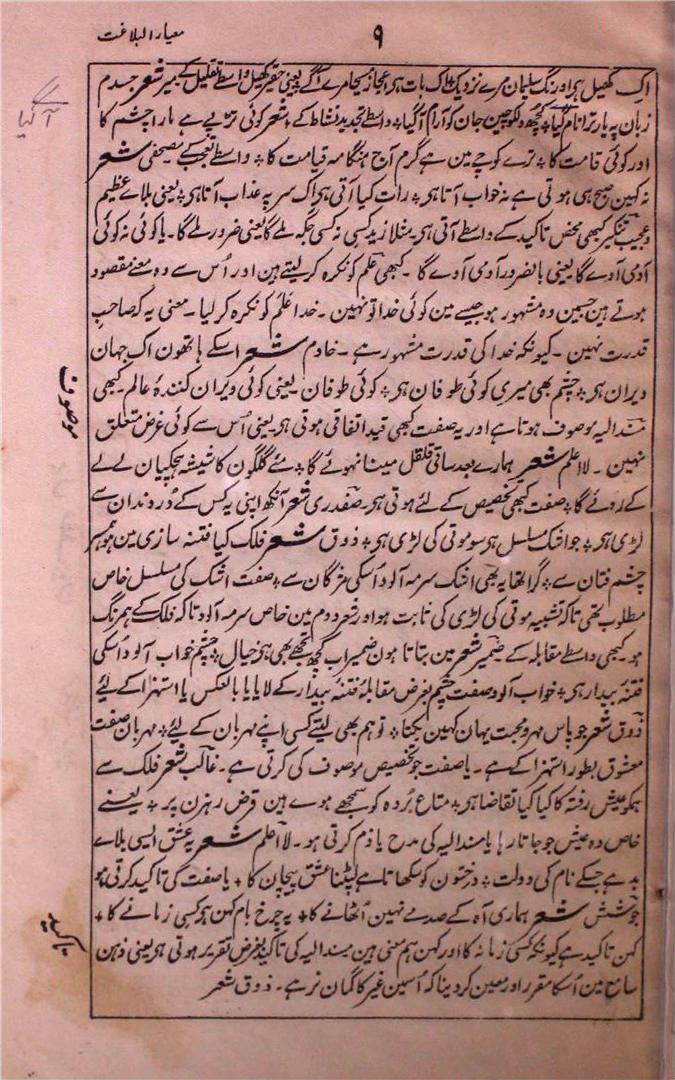 معیار البلاغت
۹
اک کھیل ہی اورنگ سلیمان مرے نزدیک ٭ اک بات ہی اعجاز مسیحا مرے آگے یعنی حقیر کھیل واسطے تقلیل کے میر شعر جسدم
زبان پہ یار ترا نام آگیا ٭ کچھ دلکو چین جان کو آرام آگیا ٭ واسطے تجدید نشاط کے شعر کوئی تڑپے ہے مارا چشم کا
آگیا
اور کوئی قامت کا ٭ ترے کوچے مین ہے گرم آج ہنگامہ قیامت کا ٭ واسطے تعجب کے مصحفی شعر
نہ کہین صبح ہی ہوتی ہے نہ خواب آتا ہی ٭ رات کیا آتی ہی اک سر پہ عذاب آتا ہی ٭ یعنی بلاے عظیم
و عجیب تنکیر کبھی محض تاکید کے واسطے آتی ہی مثلا زید کسی نہ کسی جگہ ملے گا یعنی ضرور ملے گا ۔ یا کوئی نہ کوئی
آدمی آوے گا یعنی بالضرور آدمی آوے گا ۔ کبھی علم کو نکرہ کر لیتے ہین اور اُس سے وہ معنے مقصود
ہوتے ہین جسمین وہ مشہور ہو جیسے مین کوئی خدا تو نہین ۔ خدا علم کو نکرہ کر لیا ۔ معنی یہ کہ صاحب
قدرت نہین ۔ کیونکہ خدا کی قدرت مشہور ہے ۔ خادم شعر اسکے ہاتھون اک جہان
ویران ہی ٭ چشم بھی میری کوئی طوفان ہی ٭ کوئی طوفان یعنی کوئی ویران کنندۂ عالم ۔ کبھی
موصوف
مسند الیہ موصوف ہوتا ہے اور یہ صفت کبھی قید اتفاقی ہوتی ہی یعنی اُس سے کوئی غرض متعلق
نہین ۔ لا اعلم شعر ہمارے بعد ساقی قلقل مینا نہوئے گا ٭ مئے گلگون کا شیشہ ہچکیان لے لے
کے روئے گا ٭ صفت کبھی تخصیص کے لئے ہوتی ہی ۔ صفدری شعر آنکھ اپنی یہ کس کے دُر دندان سے
لڑی ہی ٭ جو اشک مسلسل ہی سو موتی کی لڑی ہی ٭ ذوق شعر فلک کیا فتنہ سازی مین ہو ہمسر
چشم فتان سے ٭ گرا تھا یہ بھی اشک سرمہ آلود اُسکی مژگان سے ٭ صفت اشک کی مسلسل خاص
مطلوب تھی تاکہ تشبیہ موتی کی لڑی کی ثابت ہو اور شعر دوم مین خاص سرمہ آلود تاکہ فلک کے ہمرنگ
ہو ۔ کبھی واسطے مقابلہ کے ضمیر شعر مین بتاتا ہون ضمیر اب کچھ تجھے بھی ہی خیال ٭ چشم خواب آلود اُسکی
فتنۂ بیدار ہی ٭ خواب آلود صفت چشم بغرض مقابلۂ فتنۂ بیدار کے لایا یا بالعکس یا استہزا کے لئے
ذوق شعر جو پاس مہر و محبت یہان کہین بکتا ٭ تو ہم بھی لیتے کسی اپنے مہربان کے لئے ٭ مہربان صفت
معشوق بطور استہزا کے ہے ۔ یا صفت جو تخصیص موصوف کی کرتی ہے ۔ غالب شعر فلک سے
ہمکو عیش رفتہ کا کیا کیا تقاضا ہی ٭ متاع بردہ کو سمجھے ہوے ہین قرض رہزن پر ٭ یعنے
خاص وہ عیش جو جاتا رہا یا مسند الیہ کی مدح یا ذم کرتی ہو ۔ لا اعلم شعر یہ عشق ایسی بلاے
بد ہے جسکے نام کی دولت ٭ درختون کو سکھاتا ہے لپٹنا عشق پیچان کا ٭ یا صفت کی تاکید کرتی ہو
جوشش شعر ہماری آہ کے صدمے نہین اُٹھانے کا ٭ یہ چرخ بام کہن ہی کسی زمانے کا ٭
تاکید
کہن تاکید ہے کیونکہ کسی زمانہ کا اور کہن ہم معنی ہین مسند الیہ کی تاکید بغرض تقریر ہوتی ہی یعنی ذہن
سامع مین اُسکا مقرر اور معین کر دینا کہ اُسمین غیر کا گمان نہ رہے ۔ ذوق شعر